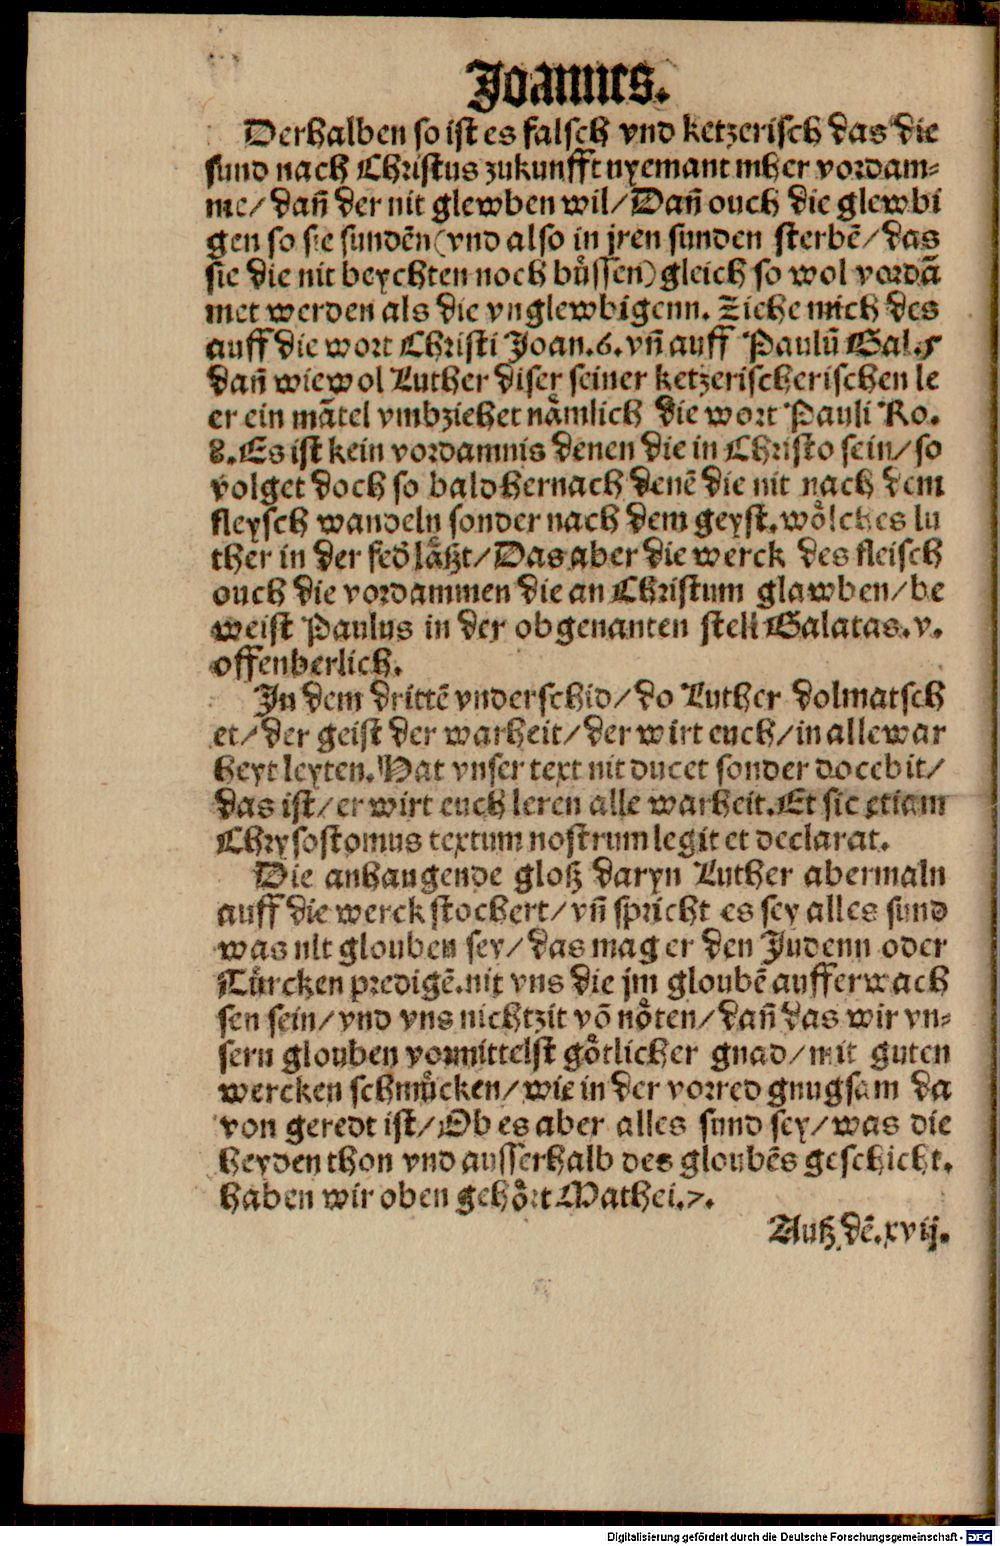 Joannes.
Derhalben so ist es falsch vnd ketzerisch das die
sund nach Christus zukunfft nyemant mher vordam⸗
me/ dañ der nit glewben wil/ Dañ ouch die glewbi
gen so sie sundẽn (vnd also in jren sunden sterbẽ/ das
sie die nit beychten noch bůssen) gleich so wol vordã
met werden als die vnglewbigenn. Ziehe mich des
auff die wort Christi Joan.6. vñ auff Paulũ Gal.5
dañ wiewol Luther diser seiner ketzerischerischen le
er ein mãtel vmbziehet nämlich die wort Pauli Ro.
8. Es ist kein vordamnis denen die in Christo sein/ so
volget doch so bald hernach denẽ die nit nach dem
fleysch wandeln sonder nach dem geyst. wölches lu
ther in der fed läßt/ Das aber die werck des fleisch
ouch die vordammen die an Christum glawben/ be
weist Paulus in der obgenanten stell Galatas. v.
offenberlich.
In dem drittẽ vnderschid/ do Luther dolmatsch
et/ der geist der warheit/ der wirt euch/ in alle war
heyt leyten. Hat vnser text nit ducet sonder docebit/
das ist/ er wirt euch leren alle warheit. Et sic etiam
Chrysostomus textum nostrum legit et declarat.
Die anhangende gloß daryn Luther abermaln
auff die werck stochert/ vñ spricht es sey alles sund
was nit glouben sey/ das mag er den Judenn oder
Türcken predigẽ. nit vns die jm gloubẽ aufferwach
sen sein/ vnd vns nichtzit võ nöten/ dañ das wir vn⸗
sern glouben vormittelst götlicher gnad/ mit guten
wercken schmücken/ wie in der vorred gnugsam da
von geredt ist/ Ob es aber alles sund sey/ was die
heyden thon vnd ausserhalb des gloubẽs geschicht.
haben wir oben gehört Mathei.7.
Auß dẽ. xvij.
Digitalisierung gefördert durch die Deutsche Forschungsgemeinschaft - DFG